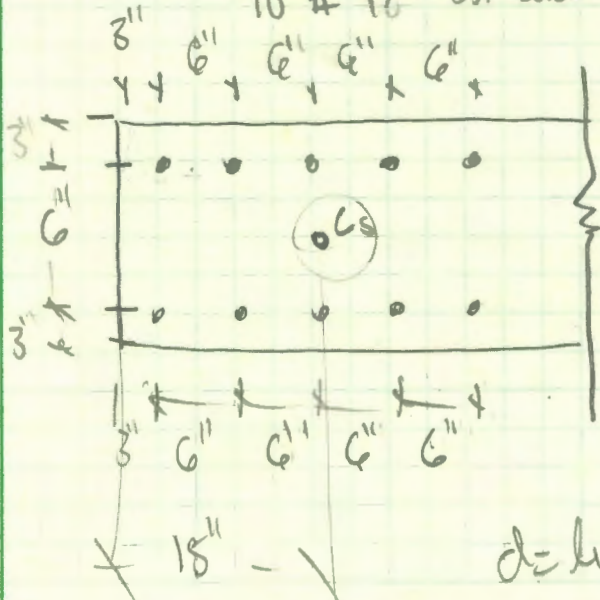 3" 6" 6" 6" 6"
3"
6"
Cs
3"
3" 6" 6" 6" 6"
15"
d=